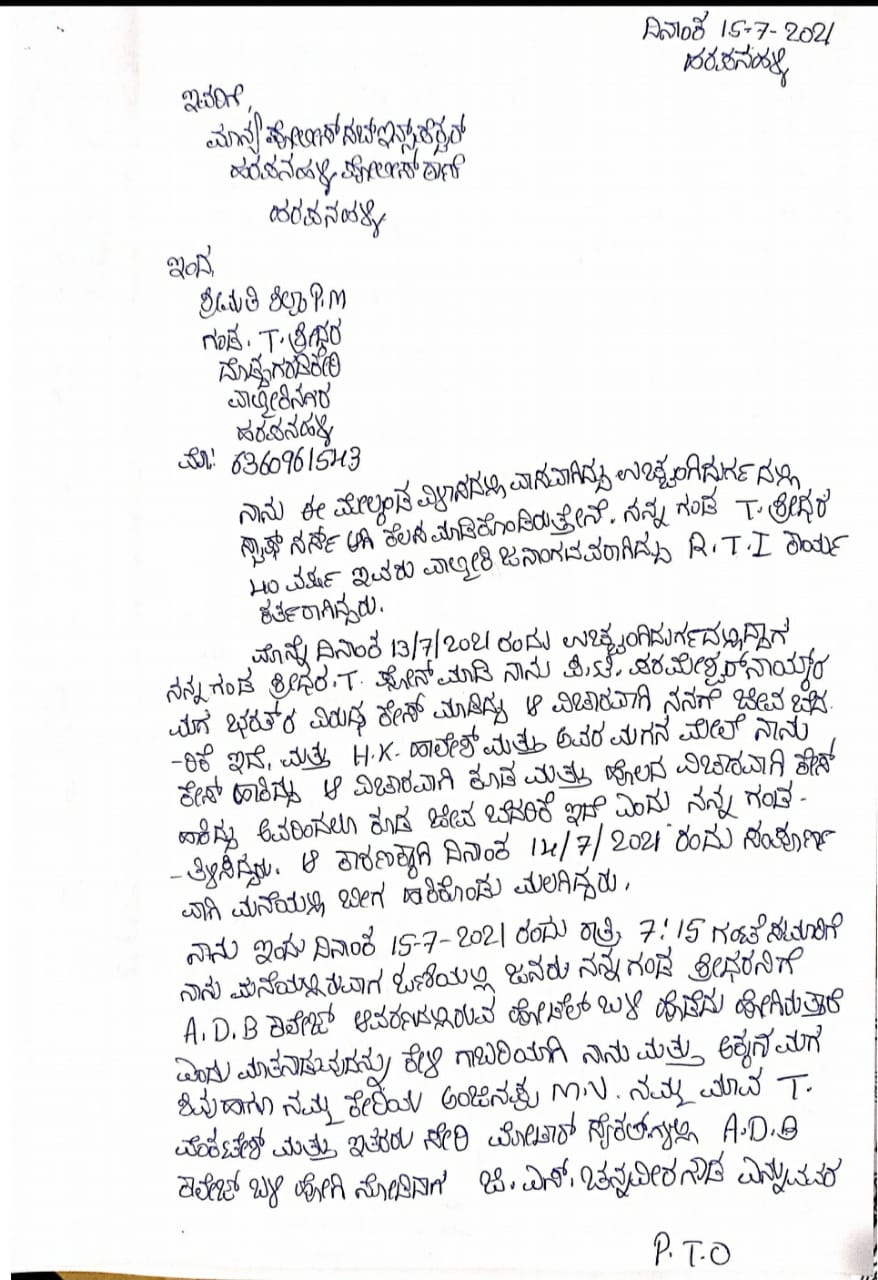 ದಿನಾಂಕ 15-7-2021
ಹರಪನಹಳ್ಳಿ
ಇವರಿಗೆ,
ಮಾನ್ಯ ಪೋಲೀಸ್ ಸಬ್ ಇನ್ಸ್‌ಪೆಕ್ಟರ್
ಹರಪನಹಳ್ಳಿ ಪೋಲೀಸ್ ಠಾಣೆ
ಹರಪನಹಳ್ಳಿ
ಇಂದ,
ಶ್ರೀಮತಿ ಶಿಲ್ಪಾ P.M
ಗಂಡ. T. ಶ್ರೀಧರ
ದೊಡ್ಡಗರಡಿಕೇರಿ
ವಾಲ್ಮೀಕಿನಗರ
ಹರಪನಹಳ್ಳಿ
ಮೊ: 6360961543
ನಾನು ಈ ಮೇಲ್ಕಂಡ ವಿಳಾಸದಲ್ಲಿ ವಾಸವಾಗಿದ್ದು ಉಚ್ಚಂಗಿದುರ್ಗದಲ್ಲಿ
ಸ್ಟಾಫ್ ನರ್ಸ್ ಆಗಿ ಕೆಲಸ ಮಾಡಿಕೊಂಡಿರುತ್ತೇನೆ. ನನ್ನ ಗಂಡ T. ಶ್ರೀಧರ
40 ವರ್ಷ ಇವರು ವಾಲ್ಮೀಕಿ ಜನಾಂಗದವರಾಗಿದ್ದು R.T.I ಕಾರ್ಯ
ಕರ್ತರಾಗಿದ್ದರು.
ಮೊನ್ನೆ ದಿನಾಂಕ 13/7/2021 ರಂದು ಉಚ್ಚಂಗಿದುರ್ಗದಲ್ಲಿದ್ದಾಗ
ನನ್ನ ಗಂಡ ಶ್ರೀಧರ.T. ಫೋನ್ ಮಾಡಿ ನಾನು ಪಿ.ಟಿ. ಪರಮೇಶ್ವರ್ ನಾಯ್ಕರ
ಮಗ ಭರತ್‌ರ ವಿರುದ್ಧ ಕೇಸ್ ಮಾಡಿದ್ದು ಆ ವಿಚಾರವಾಗಿ ನನಗೆ ಜೀವ ಬೆದ
-ರಿಕೆ ಇದೆ, ಮತ್ತು H.K. ಹಾಲೇಶ್ ಮತ್ತು ಅವರ ಮಗನ ಮೇಲೆ ನಾನು
ಕೇಸ್ ಹಾಕಿದ್ದು ಆ ವಿಚಾರವಾಗಿ ಕೂಡ ಮತ್ತು ಹೊಲದ ವಿಚಾರವಾಗಿ ಕೇಸ್
ಹಾಕಿದ್ದು ಅವರಿಂದಲೂ ಕೂಡ ಜೀವ ಬೆದರಿಕೆ ಇದೆ ಎಂದು ನನ್ನ ಗಂಡ-
-ತಿಳಿಸಿದ್ದರು. ಆ ಕಾರಣಕ್ಕಾಗಿ ದಿನಾಂಕ 14/7/2021 ರಂದು ಸಂಪೂರ್ಣ
ವಾಗಿ ಮನೆಯಲ್ಲಿ ಬೀಗ ಹಾಕಿಕೊಂಡು ಮಲಗಿದ್ದರು.
ನಾನು ಇಂದು ದಿನಾಂಕ 15-7-2021 ರಂದು ರಾತ್ರಿ 7:15 ಗಂಟೆ ಸುಮಾರಿಗೆ
ನಾನು ಮನೆಯಲ್ಲಿರುವಾಗ ಓಣಿಯಲ್ಲಿ ಜನರು ನನ್ನ ಗಂಡ ಶ್ರೀಧರನಿಗೆ
A.D.B ಕಾಲೇಜ್ ಆವರಣದಲ್ಲಿರುವ ಹೋಟೆಲ್ ಬಳಿ ಹೊಡೆದು ಹೋಗಿರುತ್ತಾರೆ
ಎಂದು ಮಾತನಾಡುವುದನ್ನು ಕೇಳಿ ಗಾಬರಿಯಾಗಿ ನಾನು ಮತ್ತು ಅಕ್ಕನ ಮಗ
ಶಿವು ಹಾಗೂ ನಮ್ಮ ಕೇರಿಯ ಅಂಜಿನಪ್ಪ M.V. ನಮ್ಮ ಮಾವ T.
ವೆಂಕಟೇಶ್ ಮತ್ತು ಇತರರು ಸೇರಿ ಮೋಟಾರ್ ಸೈಕಲ್‌ಗಳಲ್ಲಿ A.D.B
ಕಾಲೇಜ್ ಬಳಿ ಹೋಗಿ ನೋಡಿದಾಗ ಜಿ. ಎನ್. ಚನ್ನವೀರಗೌಡ ಎನ್ನುವವರ
P.T.O